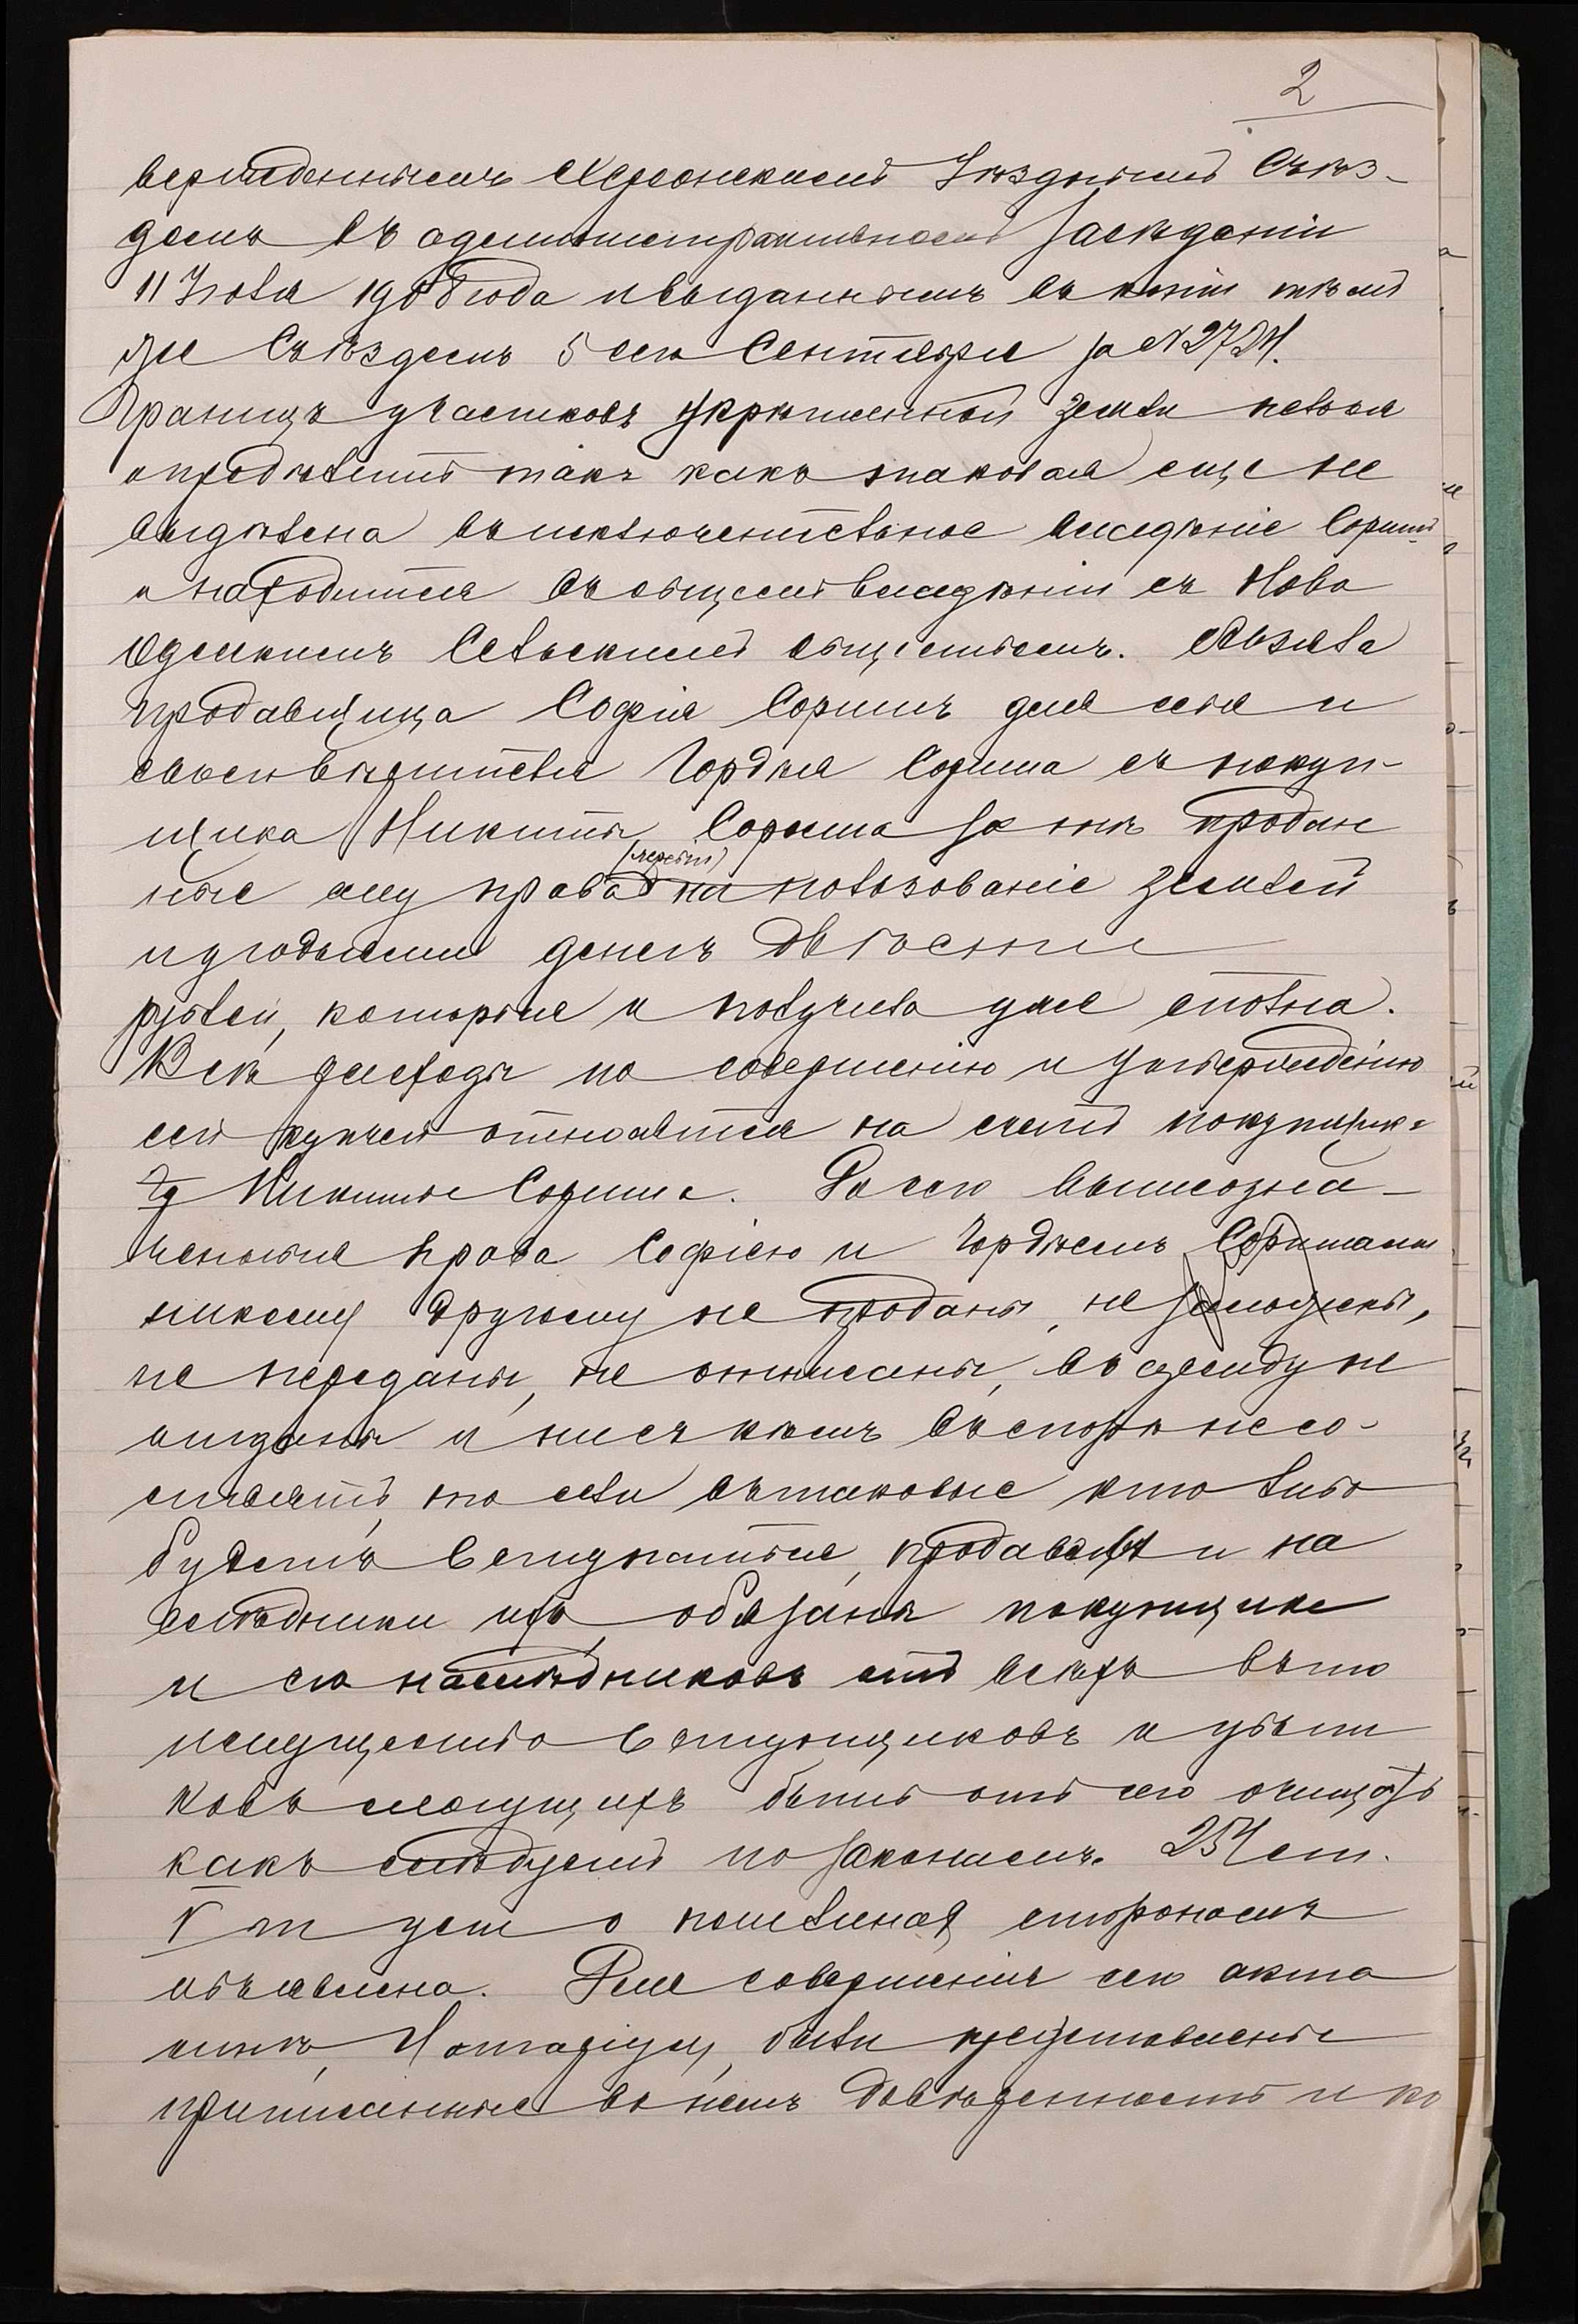 2
вержденнымъ Херсонскимъ Уѣзднымъ Съѣз-
домъ въ административномъ засѣданіи
11 Іюля 1908 года и выданнымъ въ копіи тѣмъ
же Съѣздомъ 5 сего Сентября за № 2724.
Границъ участковъ укрѣпленной земли нельзя
опредѣлить такъ какъ таковая еще не
выдѣлена въ исключительное владѣніе Сориш
и находится въ общемъ владѣніи съ Ново
Одесскимъ Сельскимъ обществомъ. Взяла
продавщица Софія Соришъ для себя и
своего вѣрителя Гордѣя Сориша съ покуп-
щика Никиты Сориша за тѣ продан
ные ему права (черезъ) на пользованіе землей
и угодьями денегъ двѣсти
рублей, которые и получила уже сполна.
Всѣ расходы по совершенію и утвержденію
сей купчей относятся на счетъ покупщик-
а Никиты Сориша. До сего вышеозна-
ченныя права Софіею и Гордѣемъ Соришами
никому другому не проданы, не заложены,
не переданы, не отписаны, въ аренду не
отданы и ни съ кѣмъ въ спорѣ не со-
стоятъ, то если въ таковые кто либо
будетъ вступаться, продавцы и на
слѣдники ихъ обязаны покупщика
и его наслѣдниковъ отъ всѣхъ въ то
имущество вступщиковъ и убыт
ковъ могущихъ быть отъ сего очищать
какъ слѣдуетъ по законамъ. 254 ст.
V т уст о пошлинахъ сторонамъ
объявлена. Для совершенія сего акта
мнѣ, Нотаріусу, были представлены
прописанные въ немъ довѣренность и ко